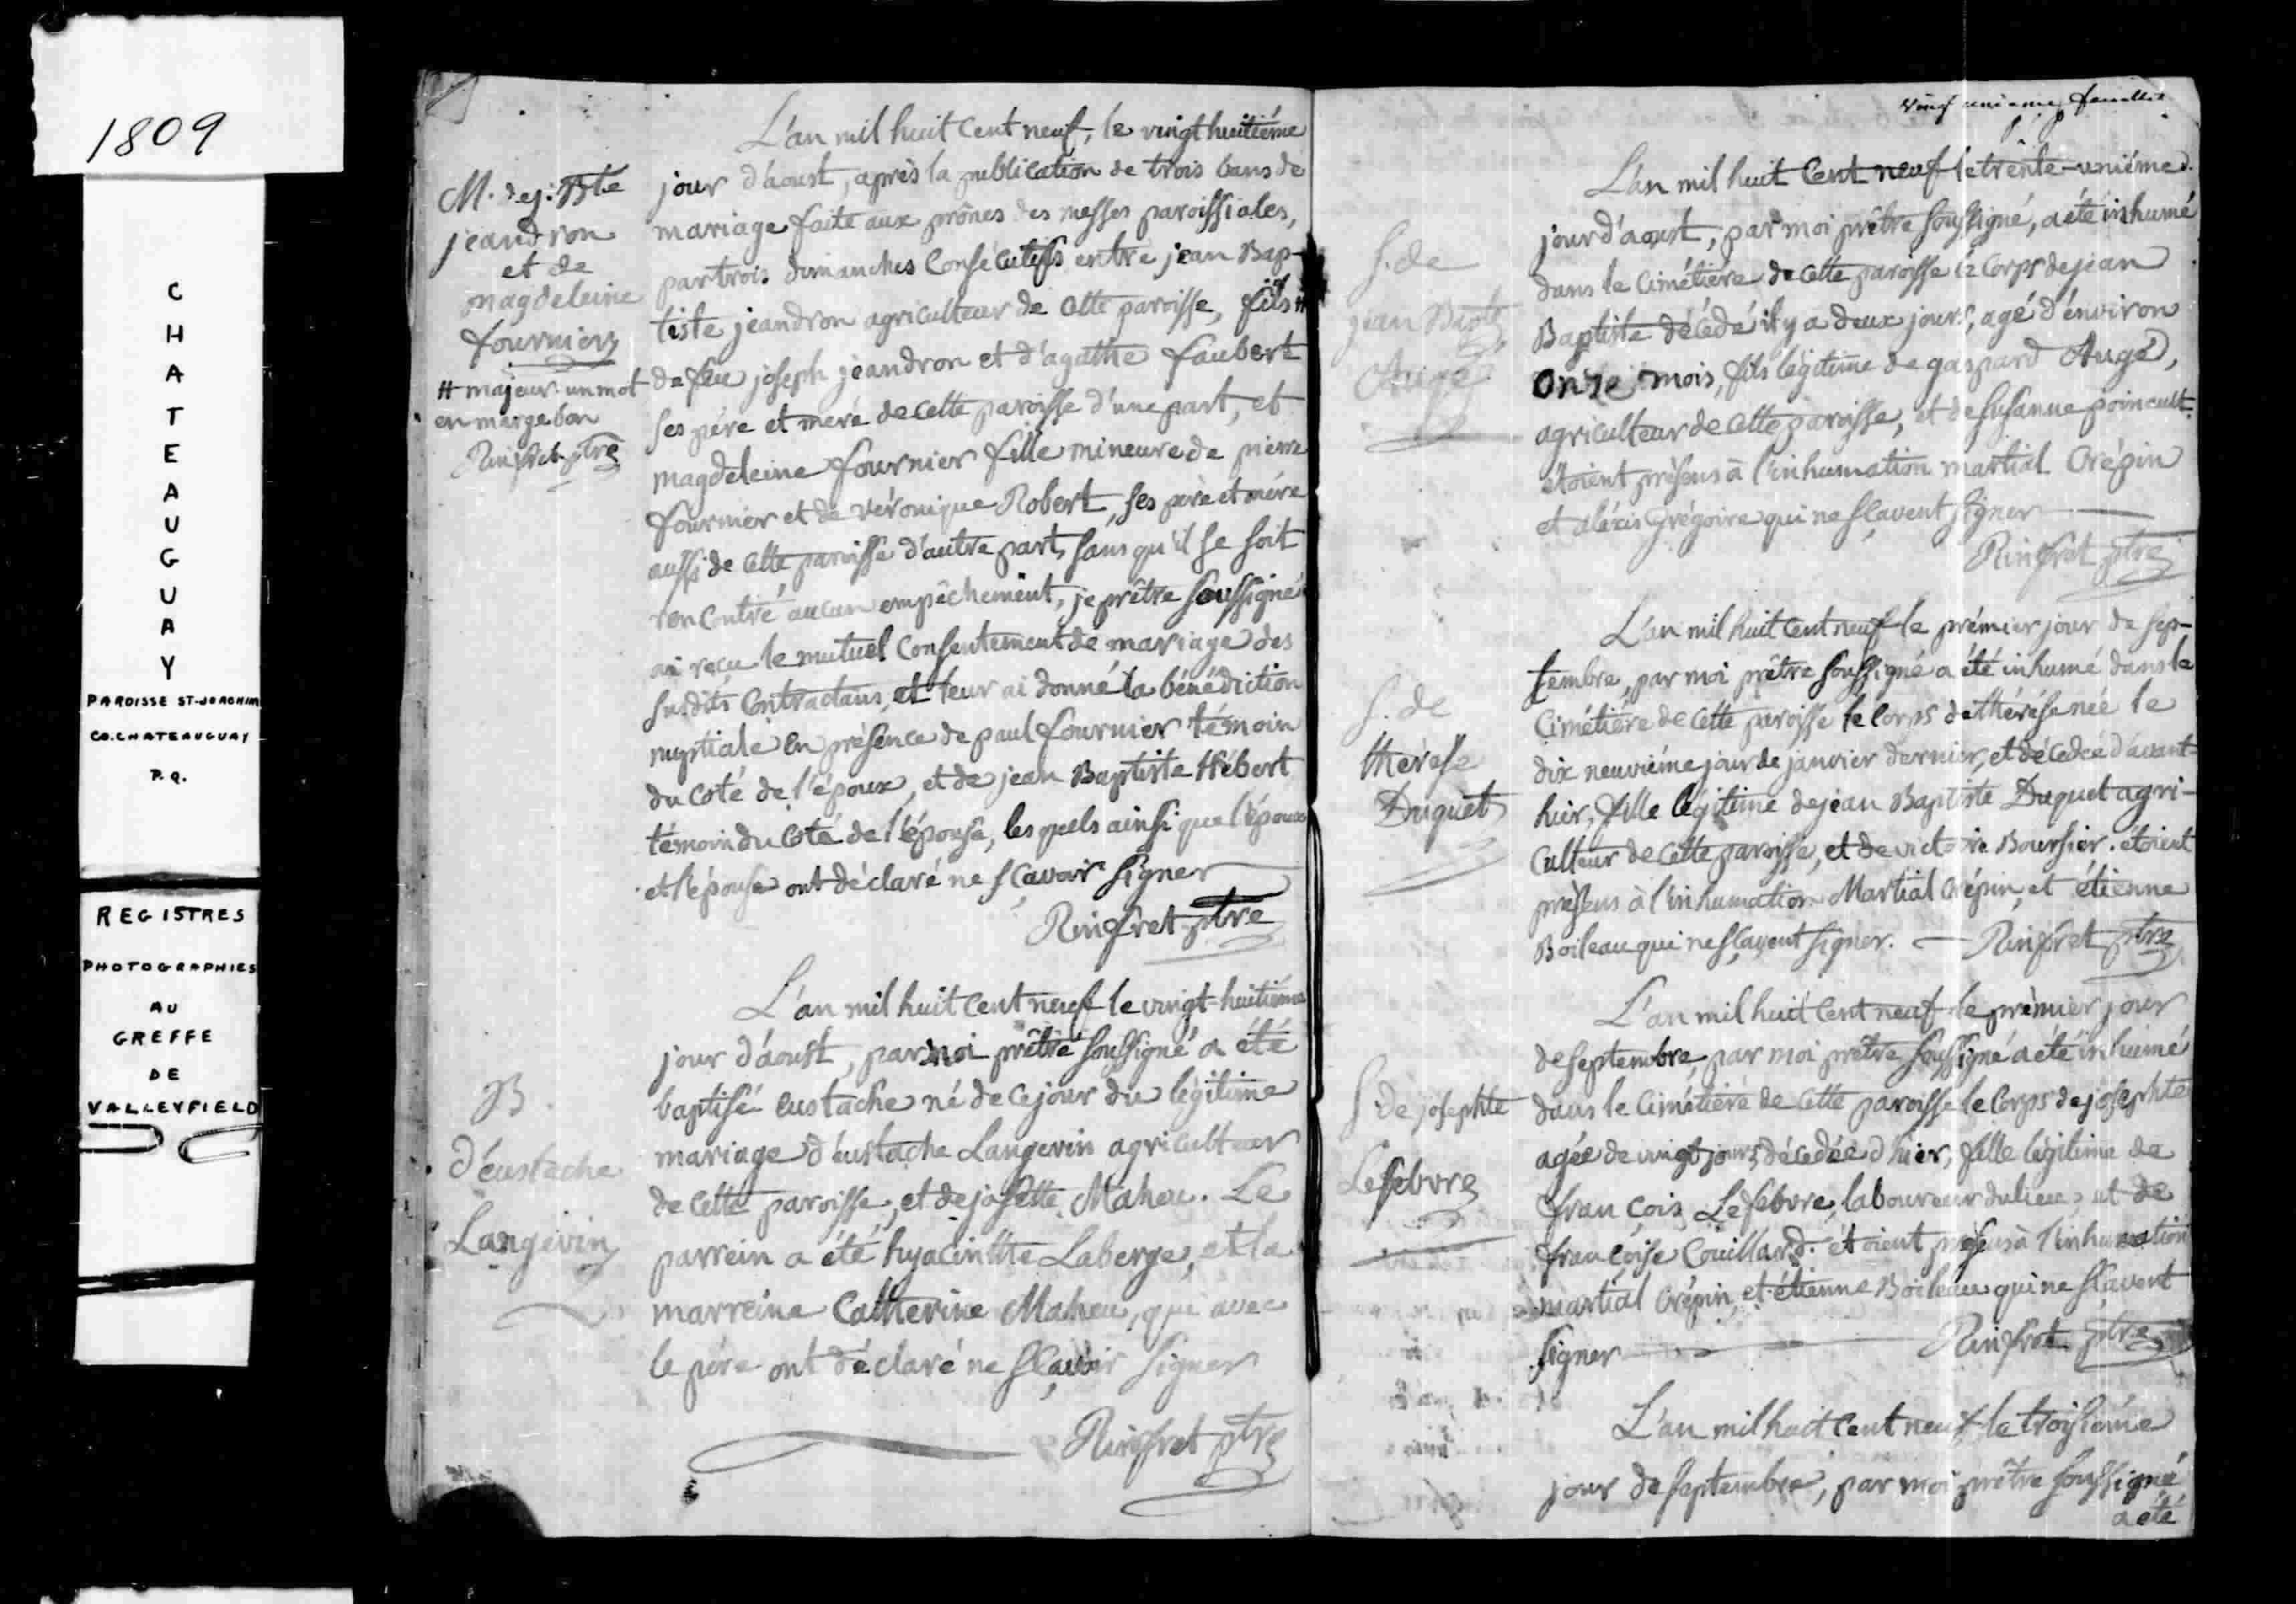 1809
CHATEAUGUAY
PAROISSE ST-JOACHIM
CO. CHATEAUGUAY
P.Q.
REGISTRES
PHOTOGRAPHIES
AU
GREFFE
DE
VALLEYFIELD
M. de j. Bte
jeandron
et de
magdeleine
fournier
# majeur. un mot
en marge bon
Rinfret ptre
L'an mil huit Cent neuf, le vingt huitiéme
jour d'aoust, après la publication de trois bans de
mariage faite aux prônes des messes paroissiales,
par trois dimanches Consécutifs entre jean Bap-
tiste jeandron agriculteur de Cette paroisse, fils #
de feu joseph jeandron et d'agathe faubert
ses pére et mere de cette paroisse d'une part, et
magdeleine fournier fille mineure de pierre
fournier et de véronique Robert, ses père et mére
aussi de Cette paroisse d'autre part, sans qu'il se soit
rencontré aucun empêchement, je prêtre soussigné
ai reçu le mutuel Consentement de mariage des
susdits Contractans, et leur ai donné la bénédiction
nuptiale en présence de paul fournier témoin
du coté de l'époux, et de jean Baptiste Hébert
témoin du coté de l'épouse, les quels ainsi que l'époux
et l'épouse ont déclaré ne sçavoir signer
Rinfret ptre
B.
d'eustache
Langevin
L'an mil huit Cent neuf le vingt-huitiéme
jour d'aoust, par moi prêtre soussigné a été
baptisé eustache né de ce jour du légitime
mariage d'eustache Langevin agriculteur
de Cette paroisse, et de josette Maheu. Le
parrein a été hyacinthe Laberge, et la
marreine Catherine Maheu, qui avec
le pére ont déclaré ne sçavoir signer
Rinfret ptre
Vingt unieme feuillet
S. de
jean Bapte
Augé
L'an mil huit Cent neuf le trente-uniéme
jour d'aoust, par moi prêtre soussigné, a été inhumé
dans le Cimétiére de Cette paroisse le Corps de jean
Baptiste décédé il y a deux jours, agé d'environ
Onze mois, fils légitime de gaspard Augé,
agriculteur de Cette paroisse, et de susanne poincult.
étoient présens à l'inhumation martial Crépin
et aléxis Grégoire qui ne sçavent signer
Rinfret ptre
S. de
thérèse
Duquet
L'an mil huit Cent neuf le prémier jour de sep-
tembre, par moi prêtre soussigné a été inhumé dans le
Cimétiére de cette paroisse le Corps de thérése née le
dix neuviéme jour de janvier dernier, et décedée d'avant-
hier, fille légitime de jean Baptiste Duquet agri-
culteur de Cette paroisse, et de victoire Boursier. étoient
présens à l'inhumation Martial Crépin, et étienne
Boileau qui ne sçavent signer. Rinfret ptre
S. de josephte
Lefebvre
L'an mil huit Cent neuf le prémier jour
de septembre, par moi prêtre soussigné a été inhumé
dans le Cimétiére de Cette paroisse le Corps de josephte
agée de vingt jours, décedée d'hier, fille légitime de
françois Lefebvre, laboureur du lieu, et de
françoise Couillard. étoient présens à l'inhumation
martial Crépin, et étienne Boileau qui ne sçavent
signer Rinfret ptre
L'an mil huit Cent neuf le troisiéme
jour de septembre, par moi prêtre soussigné
a été